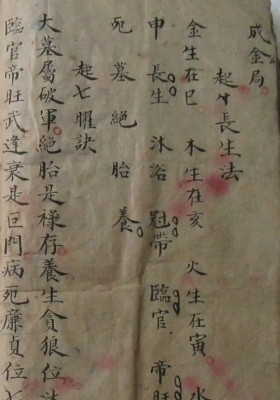 成金局
起水長生法
金生在巳　木生在亥　火生在寅　水
申　長生　沐浴　冠帶　臨官　帝旺
死　墓　絕　胎　養
起七曜訣
大墓屬破軍絕胎是祿存養生貪狼位沐
臨官帝旺武逢衰是巨門病死廉貞位七